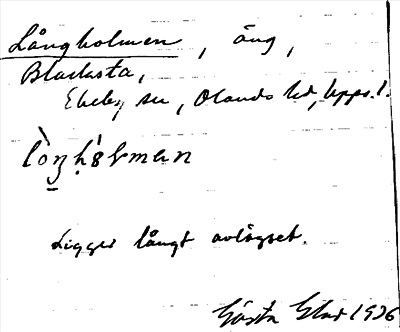 Långholmen, äng,
Blacksta,
Ekeby sn, Olands hd, Upps. l.
Ligger långt avlägset.
Gösta 1936